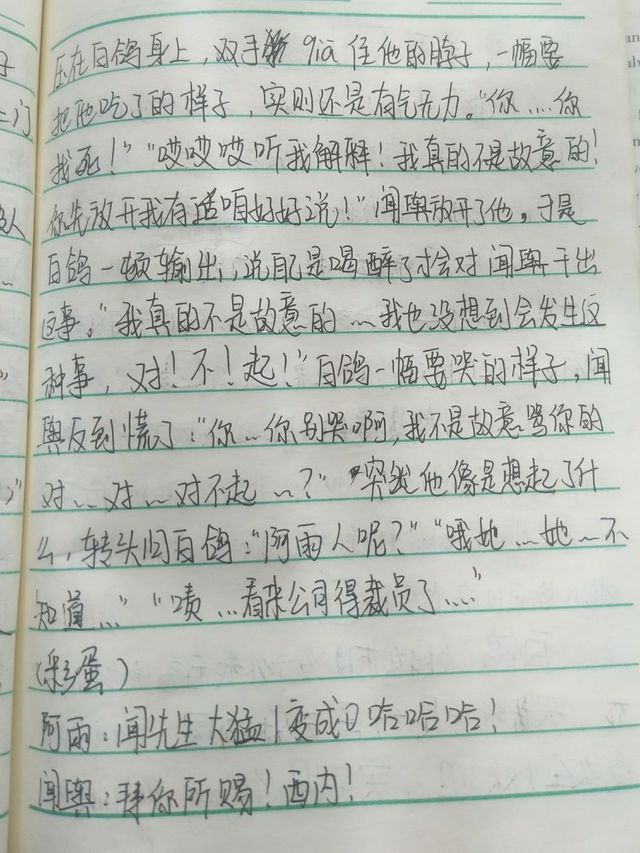 压在白鸽身上，双手 gia 住他的脖子，一幅要
把他吃了的样子，实则还是有气无力。“你....你
找死！”“哎哎哎听我解释！我真的不是故意的！
你先放开我有话咱好好说！”闻舆放开了他。于是
白鸽一顿输出，说自己是喝醉了才会对闻舆干出
这事。“我真的不是故意的...我也没想到会发生这
种事，对！不！起！”白鸽一幅要哭的样子，闻
舆反到慌了：“你...你别哭啊，我不是故意骂你的
对...对...对不起...?”突然他像是想起了什
么，转头问白鸽：“阿雨人呢？”“哦她...她...不
知道...”“啧...看来公司得裁员了....”
（彩蛋）
阿雨：闻先生大猛1变成0哈哈哈！
闻舆：拜你所赐！西内！